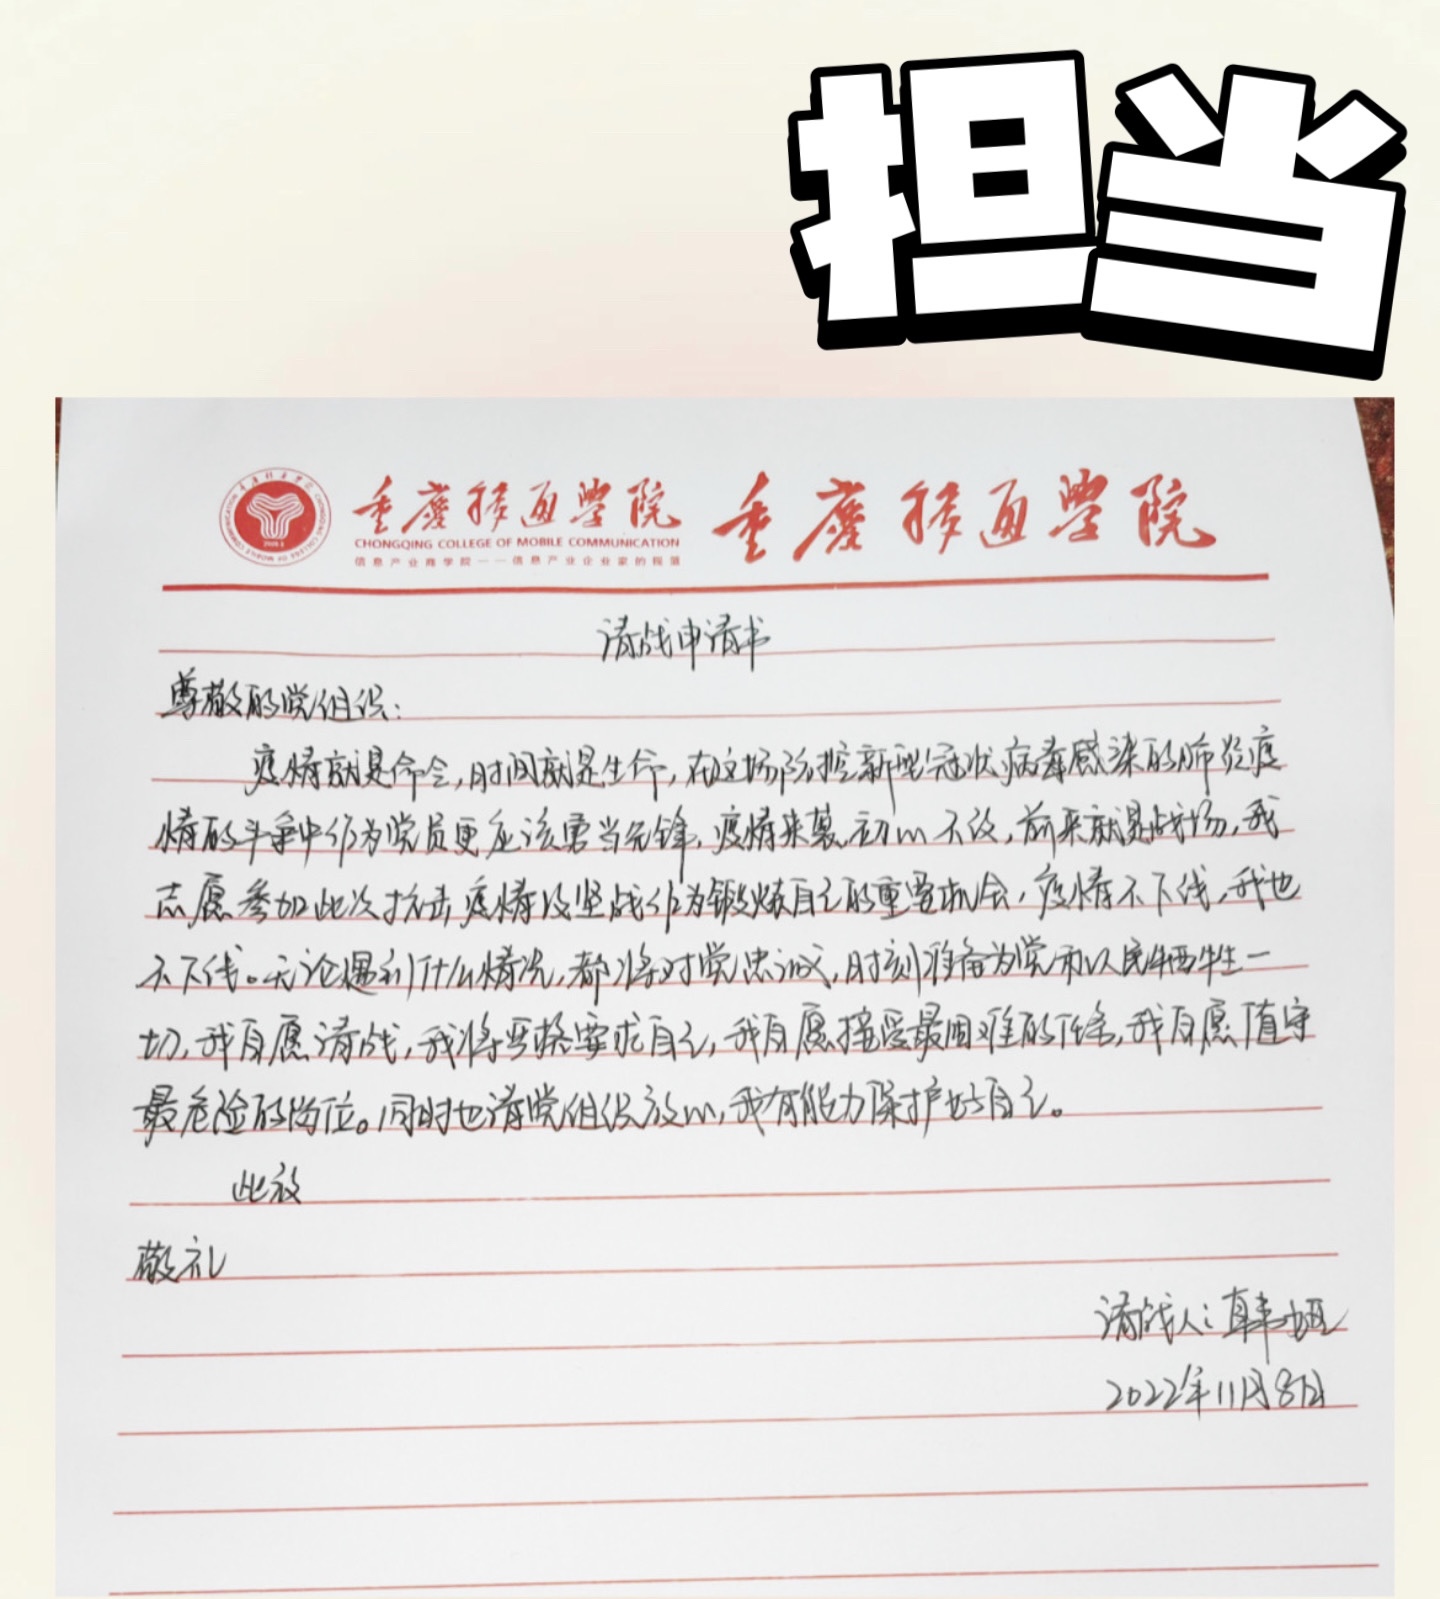 担当
重庆移通学院 重庆移通学院
CHONGQING COLLEGE OF MOBILE COMMUNICATION
信息产业商学院——信息产业企业家的摇篮
请战申请书
尊敬的党组织：
疫情就是命令，时间就是生命，在这场防控新型冠状病毒感染的肺炎疫
情的斗争中作为党员更应该勇当先锋，疫情来袭，初心不改，前来就是战场，我
志愿参加此次抗击疫情攻坚战作为锻炼自己的重要机会，疫情不下线，我也
不下线。无论遇到什么情况，都将对党忠诚，时刻准备为党和人民牺牲一
切，我自愿请战，我将严格要求自己，我自愿接受最困难的任务，我自愿值守
最危险的岗位。同时也请党组织放心，我有能力保护好自己。
此致
敬礼
请战人：韩
2022年11月8日